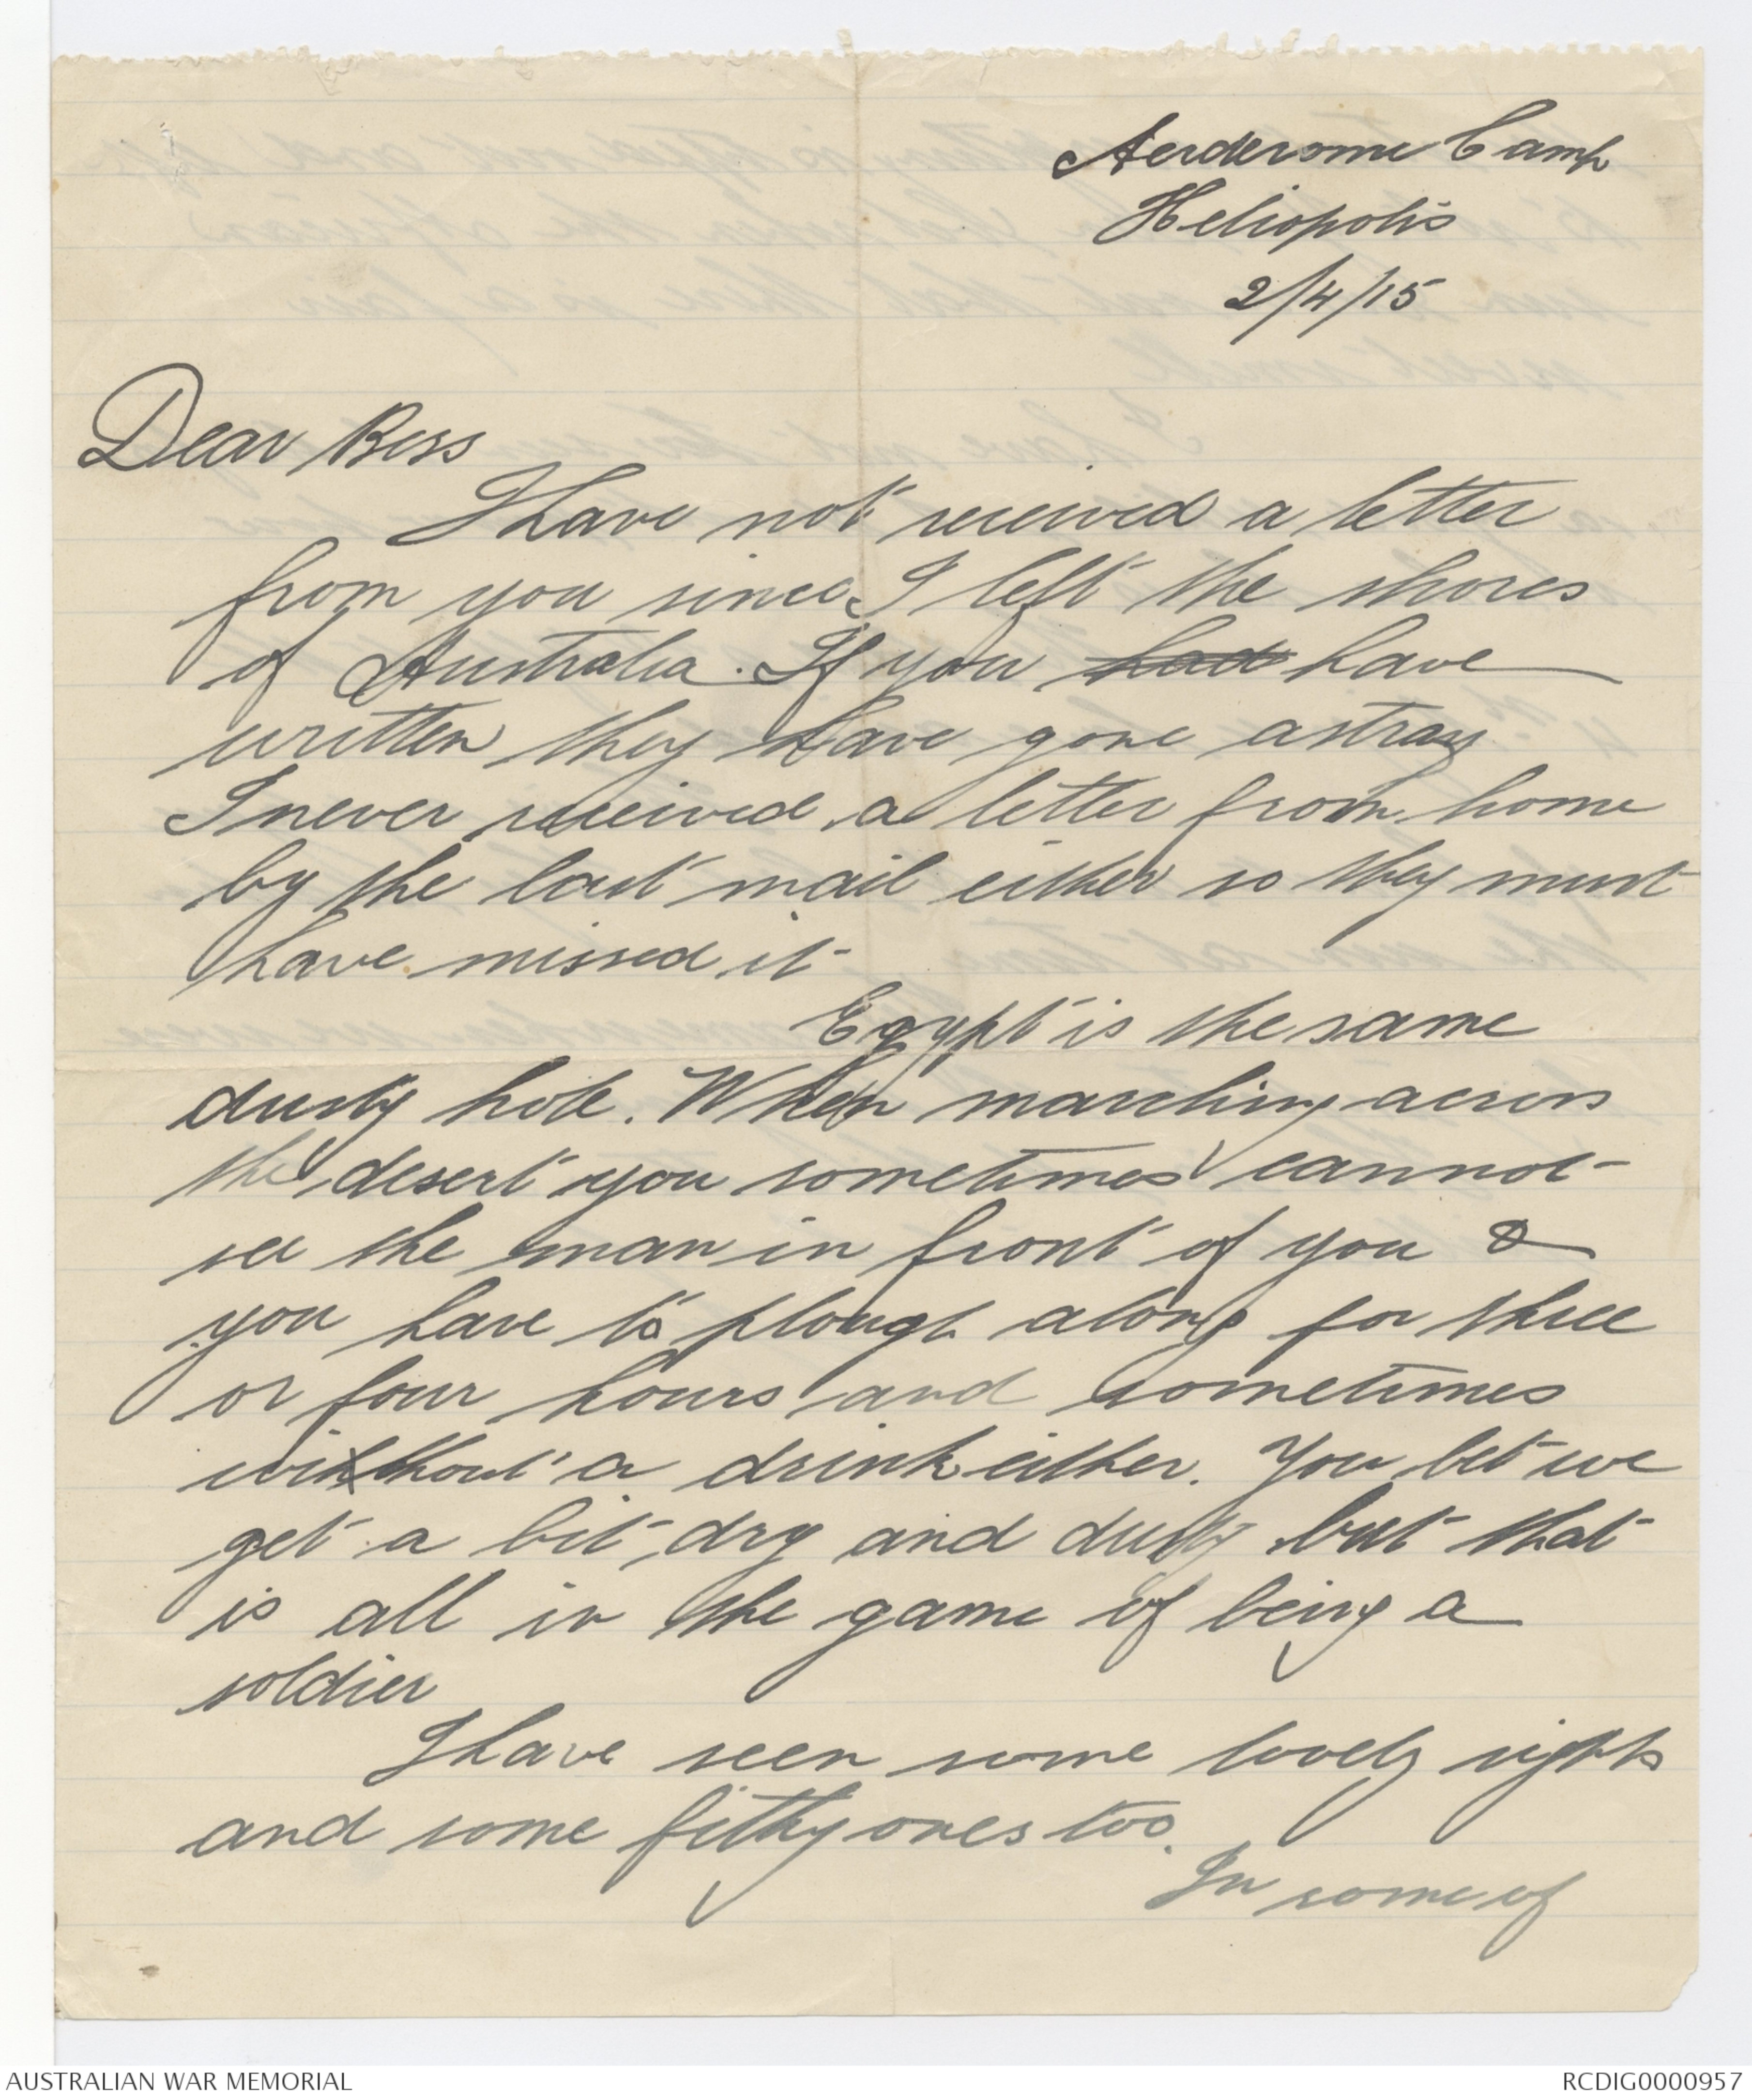 Aerderome Camp
Heliopolis
2/4/15
Dear Bess
I have not received a letter
from you since I left the shores
of Australia. If you had have
written they have gone astray
I never received a letter from home
by the last mail either so they must
have missed it
Egypt is the same
dusty hole. When marching across
the desert you sometimes cannot
see the man in front of you &
you have to plough along for three
or four hours and sometimes
without a drink either. You bet we
get a bit dry and dusty but that
is all in the game of being a
soldier
I have seen some lovely sights
and some filthy ones too.
In some of
AUSTRALIAN WAR MEMORIAL
RCDIG0000957